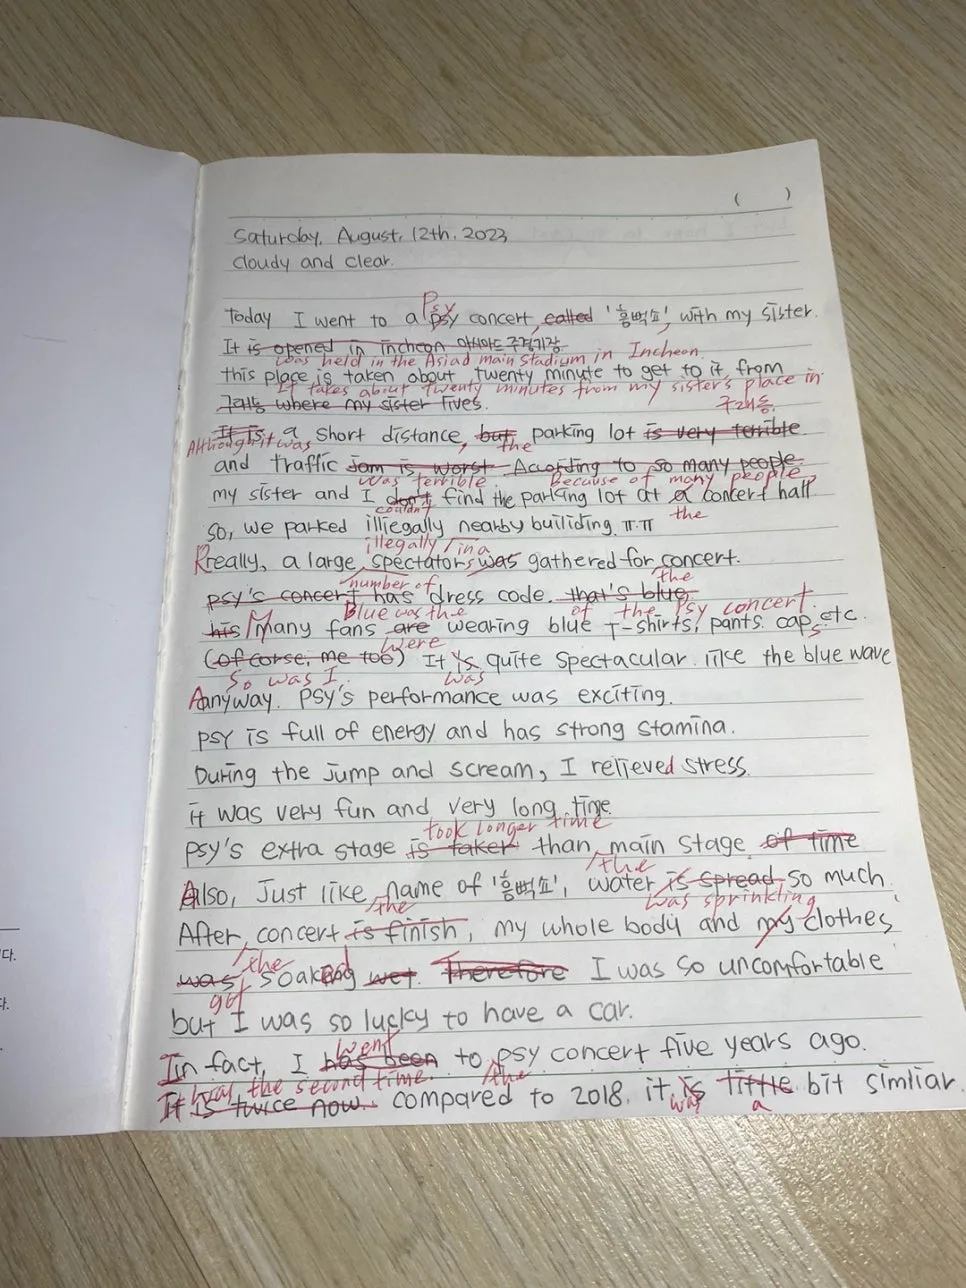 ( )
Saturday, August, 12th, 2023
cloudy and clear.
Psy
Today I went to a psy concert, called '흠뻑쇼', with my sister.
It is opened in incheon 아시아드 주경기장
was held in the Asiad main stadium in Incheon.
this place is taken about twenty minute to get to it, from
It takes about twenty minutes from my sister's place in
구래동 where my sister lives.
구래동.
It is a short distance, but parking lot is very terrible
Although it was the
and traffic Jam is worst According to so many people.
was terrible. Because of many people
my sister and I don't find the parking lot at a concert hall
couldn't the
so, we parked illiegally nearby builiding ㅠ.ㅠ
illegally in a
Really, a large spectators was gathered for concert.
number of the
psy's concert has dress code. that's blue
Blue was the of the Psy concert.
his Many fans are wearing blue T-shirts, pants. caps, etc
were
(of corse, me too) It is quite spectacular. like the blue wave
So was I. was
Anyway. PSY's performance was exciting.
PSY is full of energy and has strong stamina.
During the jump and scream, I relieved stress.
it was very fun and very long time
took longer time
PSY's extra stage is taken than main stage of time
the
Also, Just like name of '흠뻑쇼', water is spread so much
the was sprinkling
After concert is finish, my whole body and my clothes
the
was soaked wet. Therefore I was so uncomfortable
got
but I was so lucky to have a car.
went
In fact, I has been to psy concert five years ago.
was the second time. the
It is twice now. compared to 2018. it is little bit simliar.
was a